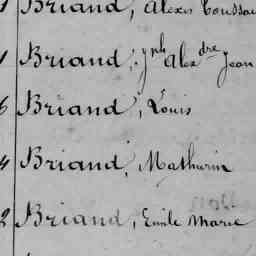 1 Briand, Alexis Toussai
1 Briand, Jph Alexdre Jean
6 Briand, Louis
4 Briand, Mathurin
2 Briand, Emile Marie